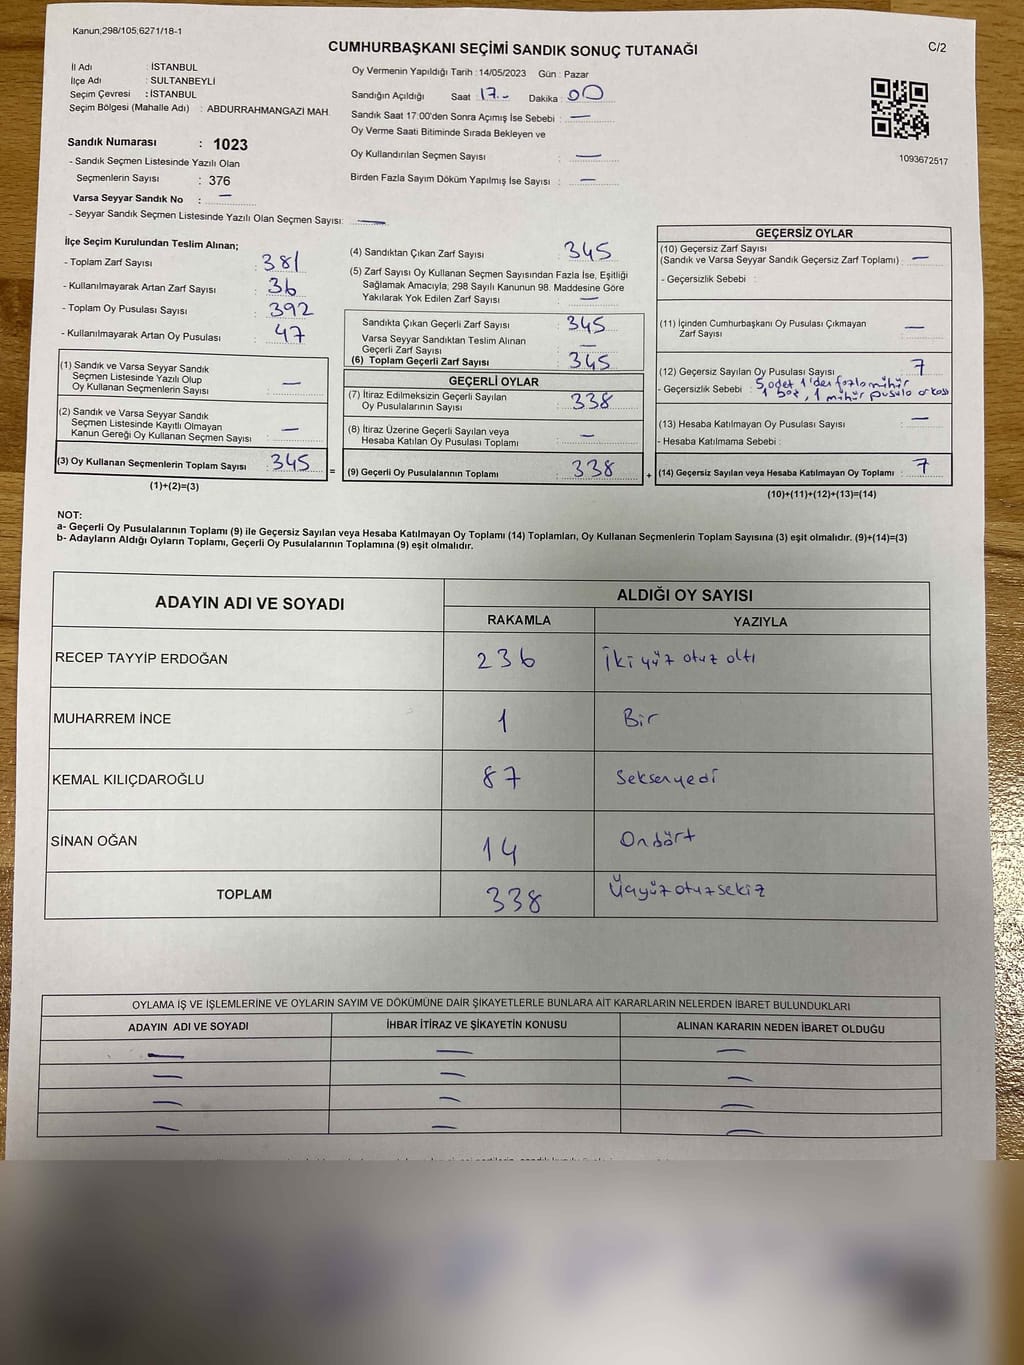 Kanun;298/105;6271/18-1
CUMHURBAŞKANI SEÇİMİ SANDIK SONUÇ TUTANAĞI
C/2
İl Adı : İSTANBUL
İlçe Adı : SULTANBEYLİ
Seçim Çevresi : İSTANBUL
Seçim Bölgesi (Mahalle Adı) : ABDURRAHMANGAZİ MAH.
Sandık Numarası : 1023
- Sandık Seçmen Listesinde Yazılı Olan
Seçmenlerin Sayısı : 376
Varsa Seyyar Sandık No : —
- Seyyar Sandık Seçmen Listesinde Yazılı Olan Seçmen Sayısı: —
Oy Vermenin Yapıldığı Tarih : 14/05/2023 Gün : Pazar
Sandığın Açıldığı Saat 17.- Dakika : 00
Sandık Saat 17:00'den Sonra Açımış İse Sebebi : —
Oy Verme Saati Bitiminde Sırada Bekleyen ve
Oy Kullandırılan Seçmen Sayısı : —
Birden Fazla Sayım Döküm Yapılmış İse Sayısı : —
1093672517
İlçe Seçim Kurulundan Teslim Alınan;
- Toplam Zarf Sayısı : 381
- Kullanılmayarak Artan Zarf Sayısı : 36
- Toplam Oy Pusulası Sayısı : 392
- Kullanılmayarak Artan Oy Pusulası : 47
(1) Sandık ve Varsa Seyyar Sandık
Seçmen Listesinde Yazılı Olup
Oy Kullanan Seçmenlerin Sayısı : —
(2) Sandık ve Varsa Seyyar Sandık
Seçmen Listesinde Kayıtlı Olmayan
Kanun Gereği Oy Kullanan Seçmen Sayısı : —
(3) Oy Kullanan Seçmenlerin Toplam Sayısı : 345
(1)+(2)=(3)
=
(4) Sandıktan Çıkan Zarf Sayısı : 345
(5) Zarf Sayısı Oy Kullanan Seçmen Sayısından Fazla İse, Eşitliği
Sağlamak Amacıyla; 298 Sayılı Kanunun 98. Maddesine Göre
Yakılarak Yok Edilen Zarf Sayısı : —
Sandıkta Çıkan Geçerli Zarf Sayısı : 345
Varsa Seyyar Sandıktan Teslim Alınan
Geçerli Zarf Sayısı : —
(6) Toplam Geçerli Zarf Sayısı : 345
GEÇERLİ OYLAR
(7) İtiraz Edilmeksizin Geçerli Sayılan
Oy Pusulalarının Sayısı : 338
(8) İtiraz Üzerine Geçerli Sayılan veya
Hesaba Katılan Oy Pusulası Toplamı : —
(9) Geçerli Oy Pusulalarının Toplamı : 338
+
GEÇERSİZ OYLAR
(10) Geçersiz Zarf Sayısı
(Sandık ve Varsa Seyyar Sandık Geçersiz Zarf Toplamı) : —
- Geçersizlik Sebebi :
(11) İçinden Cumhurbaşkanı Oy Pusulası Çıkmayan
Zarf Sayısı : —
(12) Geçersiz Sayılan Oy Pusulası Sayısı : 7
- Geçersizlik Sebebi : 5 adet 1'den fazla mühür
1 boş, 1 mühür pusula arkası
(13) Hesaba Katılmayan Oy Pusulası Sayısı : —
- Hesaba Katılmama Sebebi :
(14) Geçersiz Sayılan veya Hesaba Katılmayan Oy Toplamı : 7
(10)+(11)+(12)+(13)=(14)
NOT:
a- Geçerli Oy Pusulalarının Toplamı (9) ile Geçersiz Sayılan veya Hesaba Katılmayan Oy Toplamı (14) Toplamları, Oy Kullanan Seçmenlerin Toplam Sayısına (3) eşit olmalıdır. (9)+(14)=(3)
b- Adayların Aldığı Oyların Toplamı, Geçerli Oy Pusulalarının Toplamına (9) eşit olmalıdır.
ADAYIN ADI VE SOYADI
ALDIĞI OY SAYISI
RAKAMLA YAZIYLA
RECEP TAYYİP ERDOĞAN 236 İkiyüz otuz altı
MUHARREM İNCE 1 Bir
KEMAL KILIÇDAROĞLU 87 Seksenyedi
SİNAN OĞAN 14 Ondört
TOPLAM 338 Üçyüzotuzsekiz
OYLAMA İŞ VE İŞLEMLERİNE VE OYLARIN SAYIM VE DÖKÜMÜNE DAİR ŞİKAYETLERLE BUNLARA AİT KARARLARIN NELERDEN İBARET BULUNDUKLARI
ADAYIN ADI VE SOYADI İHBAR İTİRAZ VE ŞİKAYETİN KONUSU ALINAN KARARIN NEDEN İBARET OLDUĞU
— — —
— — —
— — —
— — —